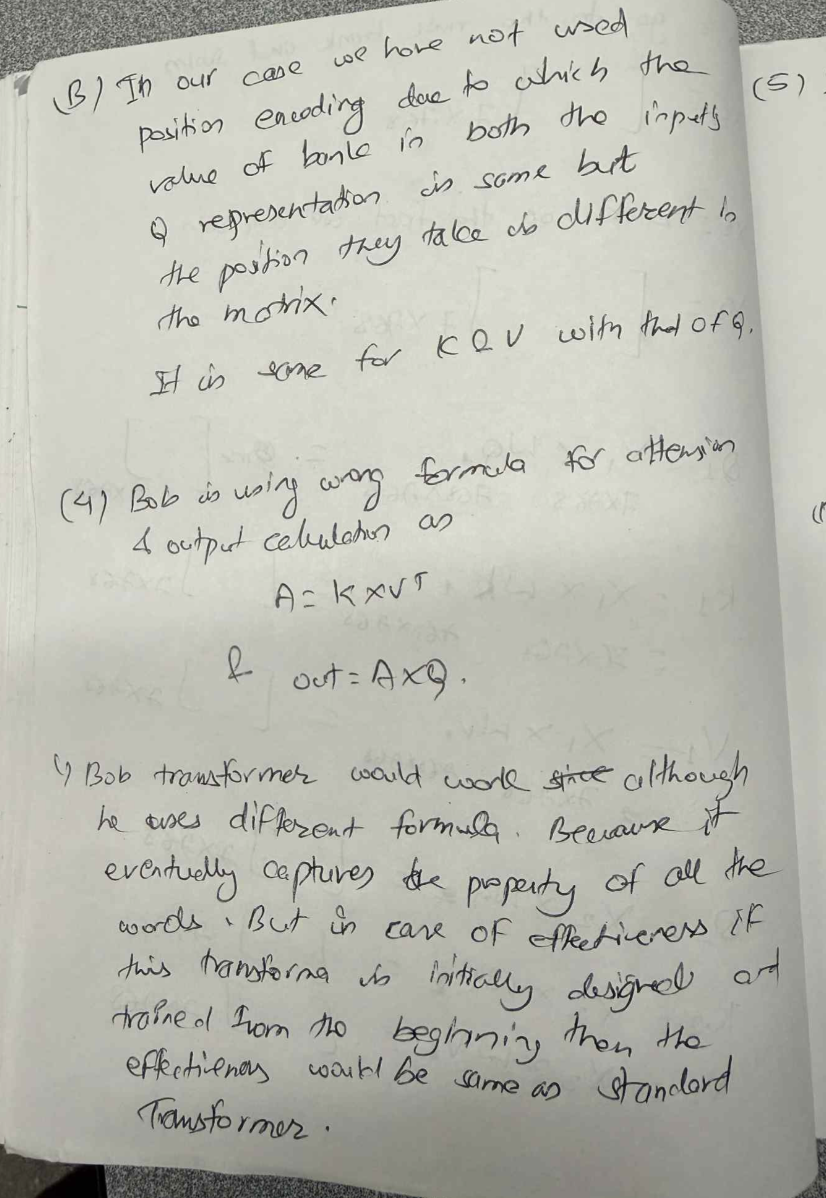 (B) In our case we have not used
position encoding due to which the
value of bank in both the inputs
Q representation is same but
the position they take is different in
the matrix.
It is same for K & V with that of Q.
(4) Bob is using wrong formula for attension
& output calculation as
A = K x V^T
& out = A x Q.
1) Bob transformer would work since although
he uses different formula. Because it
eventually captures the property of all the
words. But in case of effectiveness if
this transforma is initially designed and
trained from the beginning then the
effectiveness would be same as standard
Transformer.
(5)